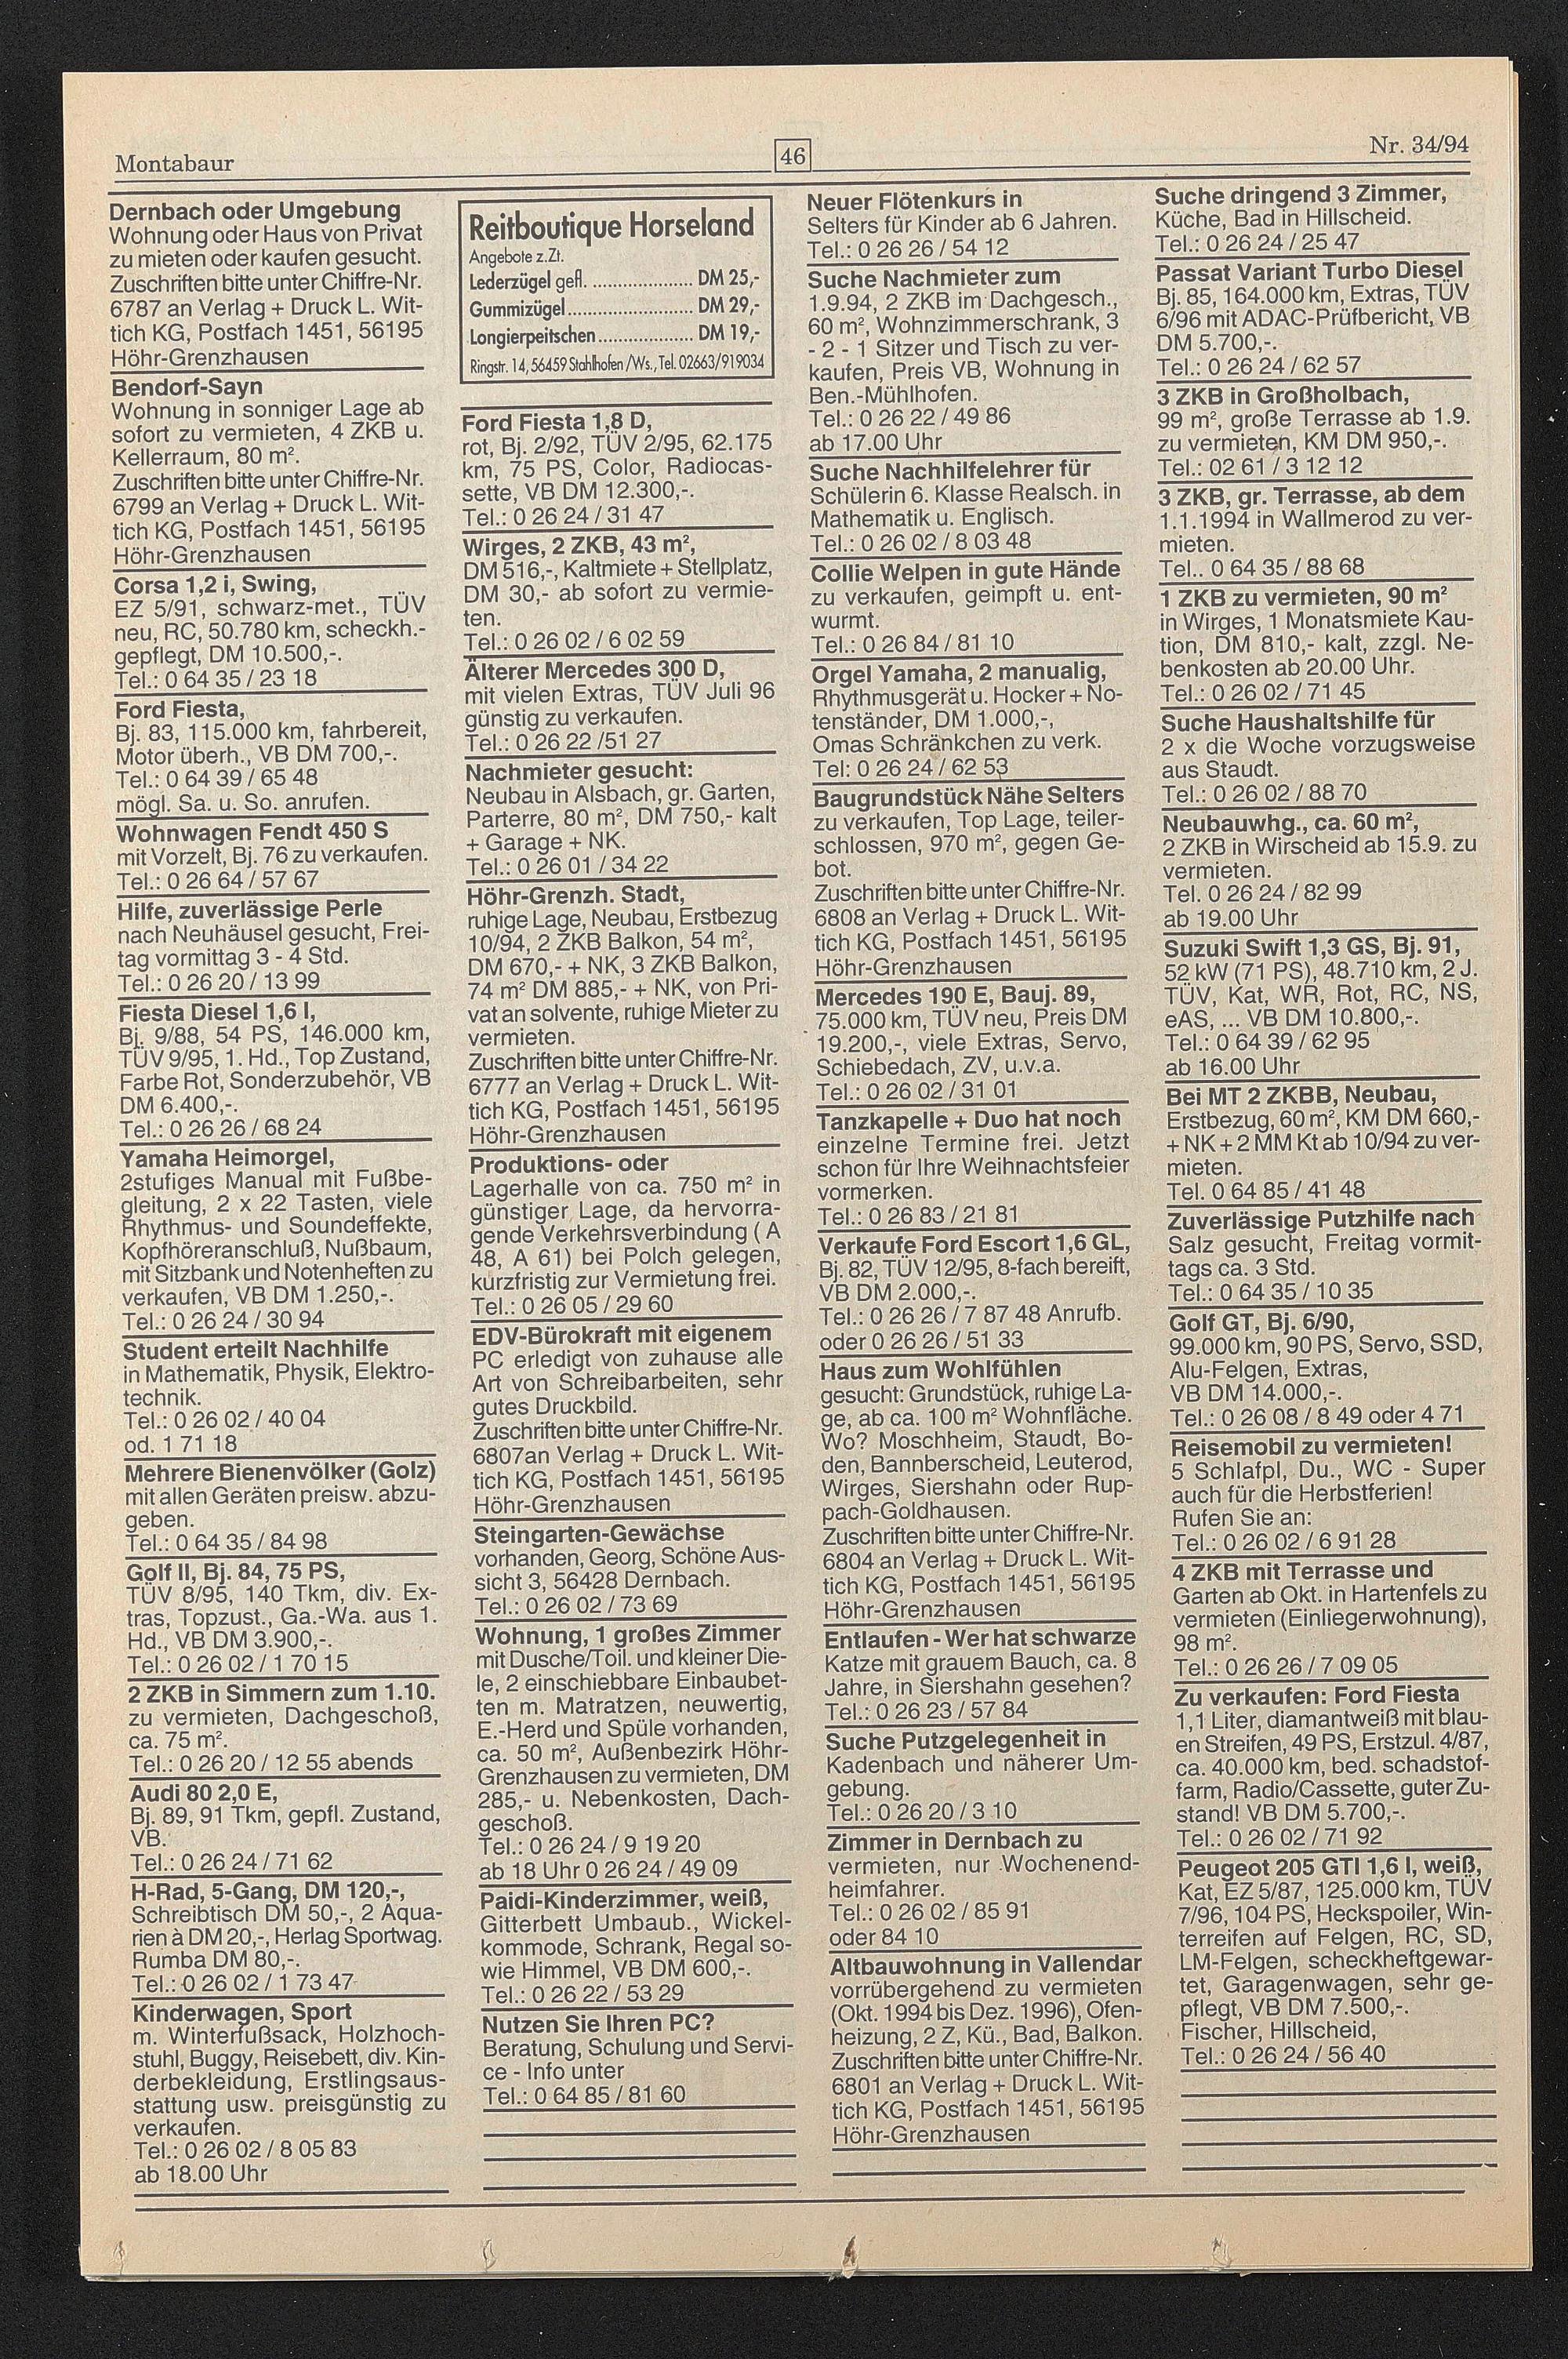 Montabaur
46
Nr. 34/94
Dernbach oder Umgebung
Wohnung oder Haus von Privat
zu mieten oder kaufen gesucht.
Zuschriften bitte unter Chiffre-Nr.
6787 an Verlag + Druck L. Wit-
tich KG, Postfach 1451, 56195
Höhr-Grenzhausen
Bendorf-Sayn
Wohnung in sonniger Lage ab
sofort zu vermieten, 4 ZKB u.
Kellerraum, 80 m².
Zuschriften bitte unter Chiffre-Nr.
6799 an Verlag + Druck L. Wit-
tich KG, Postfach 1451, 56195
Höhr-Grenzhausen
Corsa 1,2 i, Swing,
EZ 5/91, schwarz-met., TÜV
neu, RC, 50.780 km, scheckh.-
gepflegt, DM 10.500,-.
Tel.: 0 64 35 / 23 18
Ford Fiesta,
Bj. 83, 115.000 km, fahrbereit,
Motor überh., VB DM 700,-.
Tel.: 0 64 39 / 65 48
mögl. Sa. u. So. anrufen.
Wohnwagen Fendt 450 S
mit Vorzelt, Bj. 76 zu verkaufen.
Tel.: 0 26 64 / 57 67
Hilfe, zuverlässige Perle
nach Neuhäusel gesucht, Frei-
tag vormittag 3 - 4 Std.
Tel.: 0 26 20 / 13 99
Fiesta Diesel 1,6 l,
Bj. 9/88, 54 PS, 146.000 km,
TÜV 9/95, 1. Hd., Top Zustand,
Farbe Rot, Sonderzubehör, VB
DM 6.400,-.
Tel.: 0 26 26 / 68 24
Yamaha Heimorgel,
2stufiges Manual mit Fußbe-
gleitung, 2 x 22 Tasten, viele
Rhythmus- und Soundeffekte,
Kopfhöreranschluß, Nußbaum,
mit Sitzbank und Notenheften zu
verkaufen, VB DM 1.250,-.
Tel.: 0 26 24 / 30 94
Student erteilt Nachhilfe
in Mathematik, Physik, Elektro-
technik.
Tel.: 0 26 02 / 40 04
od. 1 71 18
Mehrere Bienenvölker (Golz)
mit allen Geräten preisw. abzu-
geben.
Tel.: 0 64 35 / 84 98
Golf II, Bj. 84, 75 PS,
TÜV 8/95, 140 Tkm, div. Ex-
tras, Topzust., Ga.-Wa. aus 1.
Hd., VB DM 3.900,-.
Tel.: 0 26 02 / 1 70 15
2 ZKB in Simmern zum 1.10.
zu vermieten, Dachgeschoß,
ca. 75 m².
Tel.: 0 26 20 / 12 55 abends
Audi 80 2,0 E,
Bj. 89, 91 Tkm, gepfl. Zustand,
VB.
Tel.: 0 26 24 / 71 62
H-Rad, 5-Gang, DM 120,-,
Schreibtisch DM 50,-, 2 Aqua-
rien à DM 20,-, Herlag Sportwag.
Rumba DM 80,-.
Tel.: 0 26 02 / 1 73 47
Kinderwagen, Sport
m. Winterfußsack, Holzhoch-
stuhl, Buggy, Reisebett, div. Kin-
derbekleidung, Erstlingsaus-
stattung usw. preisgünstig zu
verkaufen.
Tel.: 0 26 02 / 8 05 83
ab 18.00 Uhr
Reitboutique Horseland
Angebote z.Zt.
Lederzügel gefl. .................... DM 25,-
Gummizügel......................... DM 29,-
Longierpeitschen................... DM 19,-
Ringstr. 14, 56459 Stahlhofen /Ws., Tel. 02663/919034
Ford Fiesta 1,8 D,
rot, Bj. 2/92, TÜV 2/95, 62.175
km, 75 PS, Color, Radiocas-
sette, VB DM 12.300,-.
Tel.: 0 26 24 / 31 47
Wirges, 2 ZKB, 43 m²,
DM 516,-, Kaltmiete + Stellplatz,
DM 30,- ab sofort zu vermie-
ten.
Tel.: 0 26 02 / 6 02 59
Älterer Mercedes 300 D,
mit vielen Extras, TÜV Juli 96
günstig zu verkaufen.
Tel.: 0 26 22 /51 27
Nachmieter gesucht:
Neubau in Alsbach, gr. Garten,
Parterre, 80 m², DM 750,- kalt
+ Garage + NK.
Tel.: 0 26 01 / 34 22
Höhr-Grenzh. Stadt,
ruhige Lage, Neubau, Erstbezug
10/94, 2 ZKB Balkon, 54 m²,
DM 670,- + NK, 3 ZKB Balkon,
74 m² DM 885,- + NK, von Pri-
vat an solvente, ruhige Mieter zu
vermieten.
Zuschriften bitte unter Chiffre-Nr.
6777 an Verlag + Druck L. Wit-
tich KG, Postfach 1451, 56195
Höhr-Grenzhausen
Produktions- oder
Lagerhalle von ca. 750 m² in
günstiger Lage, da hervorra-
gende Verkehrsverbindung ( A
48, A 61) bei Polch gelegen,
kurzfristig zur Vermietung frei.
Tel.: 0 26 05 / 29 60
EDV-Bürokraft mit eigenem
PC erledigt von zuhause alle
Art von Schreibarbeiten, sehr
gutes Druckbild.
Zuschriften bitte unter Chiffre-Nr.
6807an Verlag + Druck L. Wit-
tich KG, Postfach 1451, 56195
Höhr-Grenzhausen
Steingarten-Gewächse
vorhanden, Georg, Schöne Aus-
sicht 3, 56428 Dernbach.
Tel.: 0 26 02 / 73 69
Wohnung, 1 großes Zimmer
mit Dusche/Toil. und kleiner Die-
le, 2 einschiebbare Einbaubet-
ten m. Matratzen, neuwertig,
E.-Herd und Spüle vorhanden,
ca. 50 m², Außenbezirk Höhr-
Grenzhausen zu vermieten, DM
285,- u. Nebenkosten, Dach-
geschoß.
Tel.: 0 26 24 / 9 19 20
ab 18 Uhr 0 26 24 / 49 09
Paidi-Kinderzimmer, weiß,
Gitterbett Umbaub., Wickel-
kommode, Schrank, Regal so-
wie Himmel, VB DM 600,-.
Tel.: 0 26 22 / 53 29
Nutzen Sie Ihren PC?
Beratung, Schulung und Servi-
ce - Info unter
Tel.: 0 64 85 / 81 60
Neuer Flötenkurs in
Selters für Kinder ab 6 Jahren.
Tel.: 0 26 26 / 54 12
Suche Nachmieter zum
1.9.94, 2 ZKB im Dachgesch.,
60 m², Wohnzimmerschrank, 3
- 2 - 1 Sitzer und Tisch zu ver-
kaufen, Preis VB, Wohnung in
Ben.-Mühlhofen.
Tel.: 0 26 22 / 49 86
ab 17.00 Uhr
Suche Nachhilfelehrer für
Schülerin 6. Klasse Realsch. in
Mathematik u. Englisch.
Tel.: 0 26 02 / 8 03 48
Collie Welpen in gute Hände
zu verkaufen, geimpft u. ent-
wurmt.
Tel.: 0 26 84 / 81 10
Orgel Yamaha, 2 manualig,
Rhythmusgerät u. Hocker + No-
tenständer, DM 1.000,-,
Omas Schränkchen zu verk.
Tel: 0 26 24 / 62 53
Baugrundstück Nähe Selters
zu verkaufen, Top Lage, teiler-
schlossen, 970 m², gegen Ge-
bot.
Zuschriften bitte unter Chiffre-Nr.
6808 an Verlag + Druck L. Wit-
tich KG, Postfach 1451, 56195
Höhr-Grenzhausen
Mercedes 190 E, Bauj. 89,
75.000 km, TÜV neu, Preis DM
19.200,-, viele Extras, Servo,
Schiebedach, ZV, u.v.a.
Tel.: 0 26 02 / 31 01
Tanzkapelle + Duo hat noch
einzelne Termine frei. Jetzt
schon für Ihre Weihnachtsfeier
vormerken.
Tel.: 0 26 83 / 21 81
Verkaufe Ford Escort 1,6 GL,
Bj. 82, TÜV 12/95, 8-fach bereift,
VB DM 2.000,-.
Tel.: 0 26 26 / 7 87 48 Anrufb.
oder 0 26 26 / 51 33
Haus zum Wohlfühlen
gesucht: Grundstück, ruhige La-
ge, ab ca. 100 m² Wohnfläche.
Wo? Moschheim, Staudt, Bo-
den, Bannberscheid, Leuterod,
Wirges, Siershahn oder Rup-
pach-Goldhausen.
Zuschriften bitte unter Chiffre-Nr.
6804 an Verlag + Druck L. Wit-
tich KG, Postfach 1451, 56195
Höhr-Grenzhausen
Entlaufen - Wer hat schwarze
Katze mit grauem Bauch, ca. 8
Jahre, in Siershahn gesehen?
Tel.: 0 26 23 / 57 84
Suche Putzgelegenheit in
Kadenbach und näherer Um-
gebung.
Tel.: 0 26 20 / 3 10
Zimmer in Dernbach zu
vermieten, nur Wochenend-
heimfahrer.
Tel.: 0 26 02 / 85 91
oder 84 10
Altbauwohnung in Vallendar
vorrübergehend zu vermieten
(Okt. 1994 bis Dez. 1996), Ofen-
heizung, 2 Z, Kü., Bad, Balkon.
Zuschriften bitte unter Chiffre-Nr.
6801 an Verlag + Druck L. Wit-
tich KG, Postfach 1451, 56195
Höhr-Grenzhausen
Suche dringend 3 Zimmer,
Küche, Bad in Hillscheid.
Tel.: 0 26 24 / 25 47
Passat Variant Turbo Diesel
Bj. 85, 164.000 km, Extras, TÜV
6/96 mit ADAC-Prüfbericht, VB
DM 5.700,-.
Tel.: 0 26 24 / 62 57
3 ZKB in Großholbach,
99 m², große Terrasse ab 1.9.
zu vermieten, KM DM 950,-.
Tel.: 02 61 / 3 12 12
3 ZKB, gr. Terrasse, ab dem
1.1.1994 in Wallmerod zu ver-
mieten.
Tel.. 0 64 35 / 88 68
1 ZKB zu vermieten, 90 m²
in Wirges, 1 Monatsmiete Kau-
tion, DM 810,- kalt, zzgl. Ne-
benkosten ab 20.00 Uhr.
Tel.: 0 26 02 / 71 45
Suche Haushaltshilfe für
2 x die Woche vorzugsweise
aus Staudt.
Tel.: 0 26 02 / 88 70
Neubauwhg., ca. 60 m²,
2 ZKB in Wirscheid ab 15.9. zu
vermieten.
Tel. 0 26 24 / 82 99
ab 19.00 Uhr
Suzuki Swift 1,3 GS, Bj. 91,
52 kW (71 PS), 48.710 km, 2 J.
TÜV, Kat, WR, Rot, RC, NS,
eAS, ... VB DM 10.800,-.
Tel.: 0 64 39 / 62 95
ab 16.00 Uhr
Bei MT 2 ZKBB, Neubau,
Erstbezug, 60 m², KM DM 660,-
+ NK + 2 MM Kt ab 10/94 zu ver-
mieten.
Tel. 0 64 85 / 41 48
Zuverlässige Putzhilfe nach
Salz gesucht, Freitag vormit-
tags ca. 3 Std.
Tel.: 0 64 35 / 10 35
Golf GT, Bj. 6/90,
99.000 km, 90 PS, Servo, SSD,
Alu-Felgen, Extras,
VB DM 14.000,-.
Tel.: 0 26 08 / 8 49 oder 4 71
Reisemobil zu vermieten!
5 Schlafpl, Du., WC - Super
auch für die Herbstferien!
Rufen Sie an:
Tel.: 0 26 02 / 6 91 28
4 ZKB mit Terrasse und
Garten ab Okt. in Hartenfels zu
vermieten (Einliegerwohnung),
98 m².
Tel.: 0 26 26 / 7 09 05
Zu verkaufen: Ford Fiesta
1,1 Liter, diamantweiß mit blau-
en Streifen, 49 PS, Erstzul. 4/87,
ca. 40.000 km, bed. schadstof-
farm, Radio/Cassette, guter Zu-
stand! VB DM 5.700,-.
Tel.: 0 26 02 / 71 92
Peugeot 205 GTI 1,6 l, weiß,
Kat, EZ 5/87, 125.000 km, TÜV
7/96, 104 PS, Heckspoiler, Win-
terreifen auf Felgen, RC, SD,
LM-Felgen, scheckheftgewar-
tet, Garagenwagen, sehr ge-
pflegt, VB DM 7.500,-.
Fischer, Hillscheid,
Tel.: 0 26 24 / 56 40